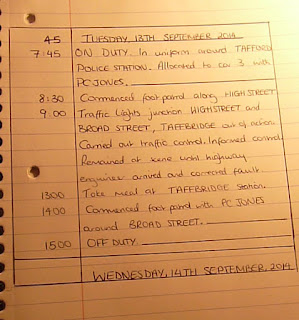 45 TUESDAY, 13TH SEPTEMBER 2014
7:45 ON DUTY. In uniform around TAFFORD
POLICE STATION. Allocated to car 3 with
PC JONES.
8:30 Commenced foot patrol along HIGH STREET
9:00 Traffic Lights junction HIGHSTREET and
BROAD STREET, TAFFBRIDGE out of action.
Carried out traffic control. Informed control.
Remained at scene until highway
engineer arrived and corrected fault
1300 Take meal at TAFFBRIDGE Station.
1400 Commenced foot patrol with PC JONES
around BROAD STREET.
1500 OFF DUTY.
WEDNESDAY, 14TH SEPTEMBER, 2014